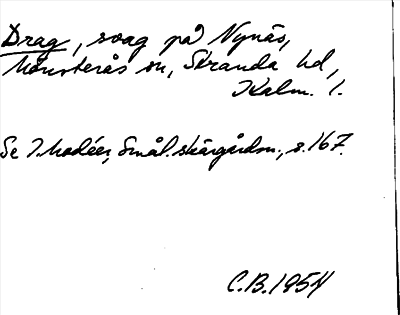 Drag, svag på Nynäs,
Mönsterås sn, Stranda hd,
Kalm. l.
Se I. Modéer, Smål. skärgårdsn., s. 167.
C.B. 1954